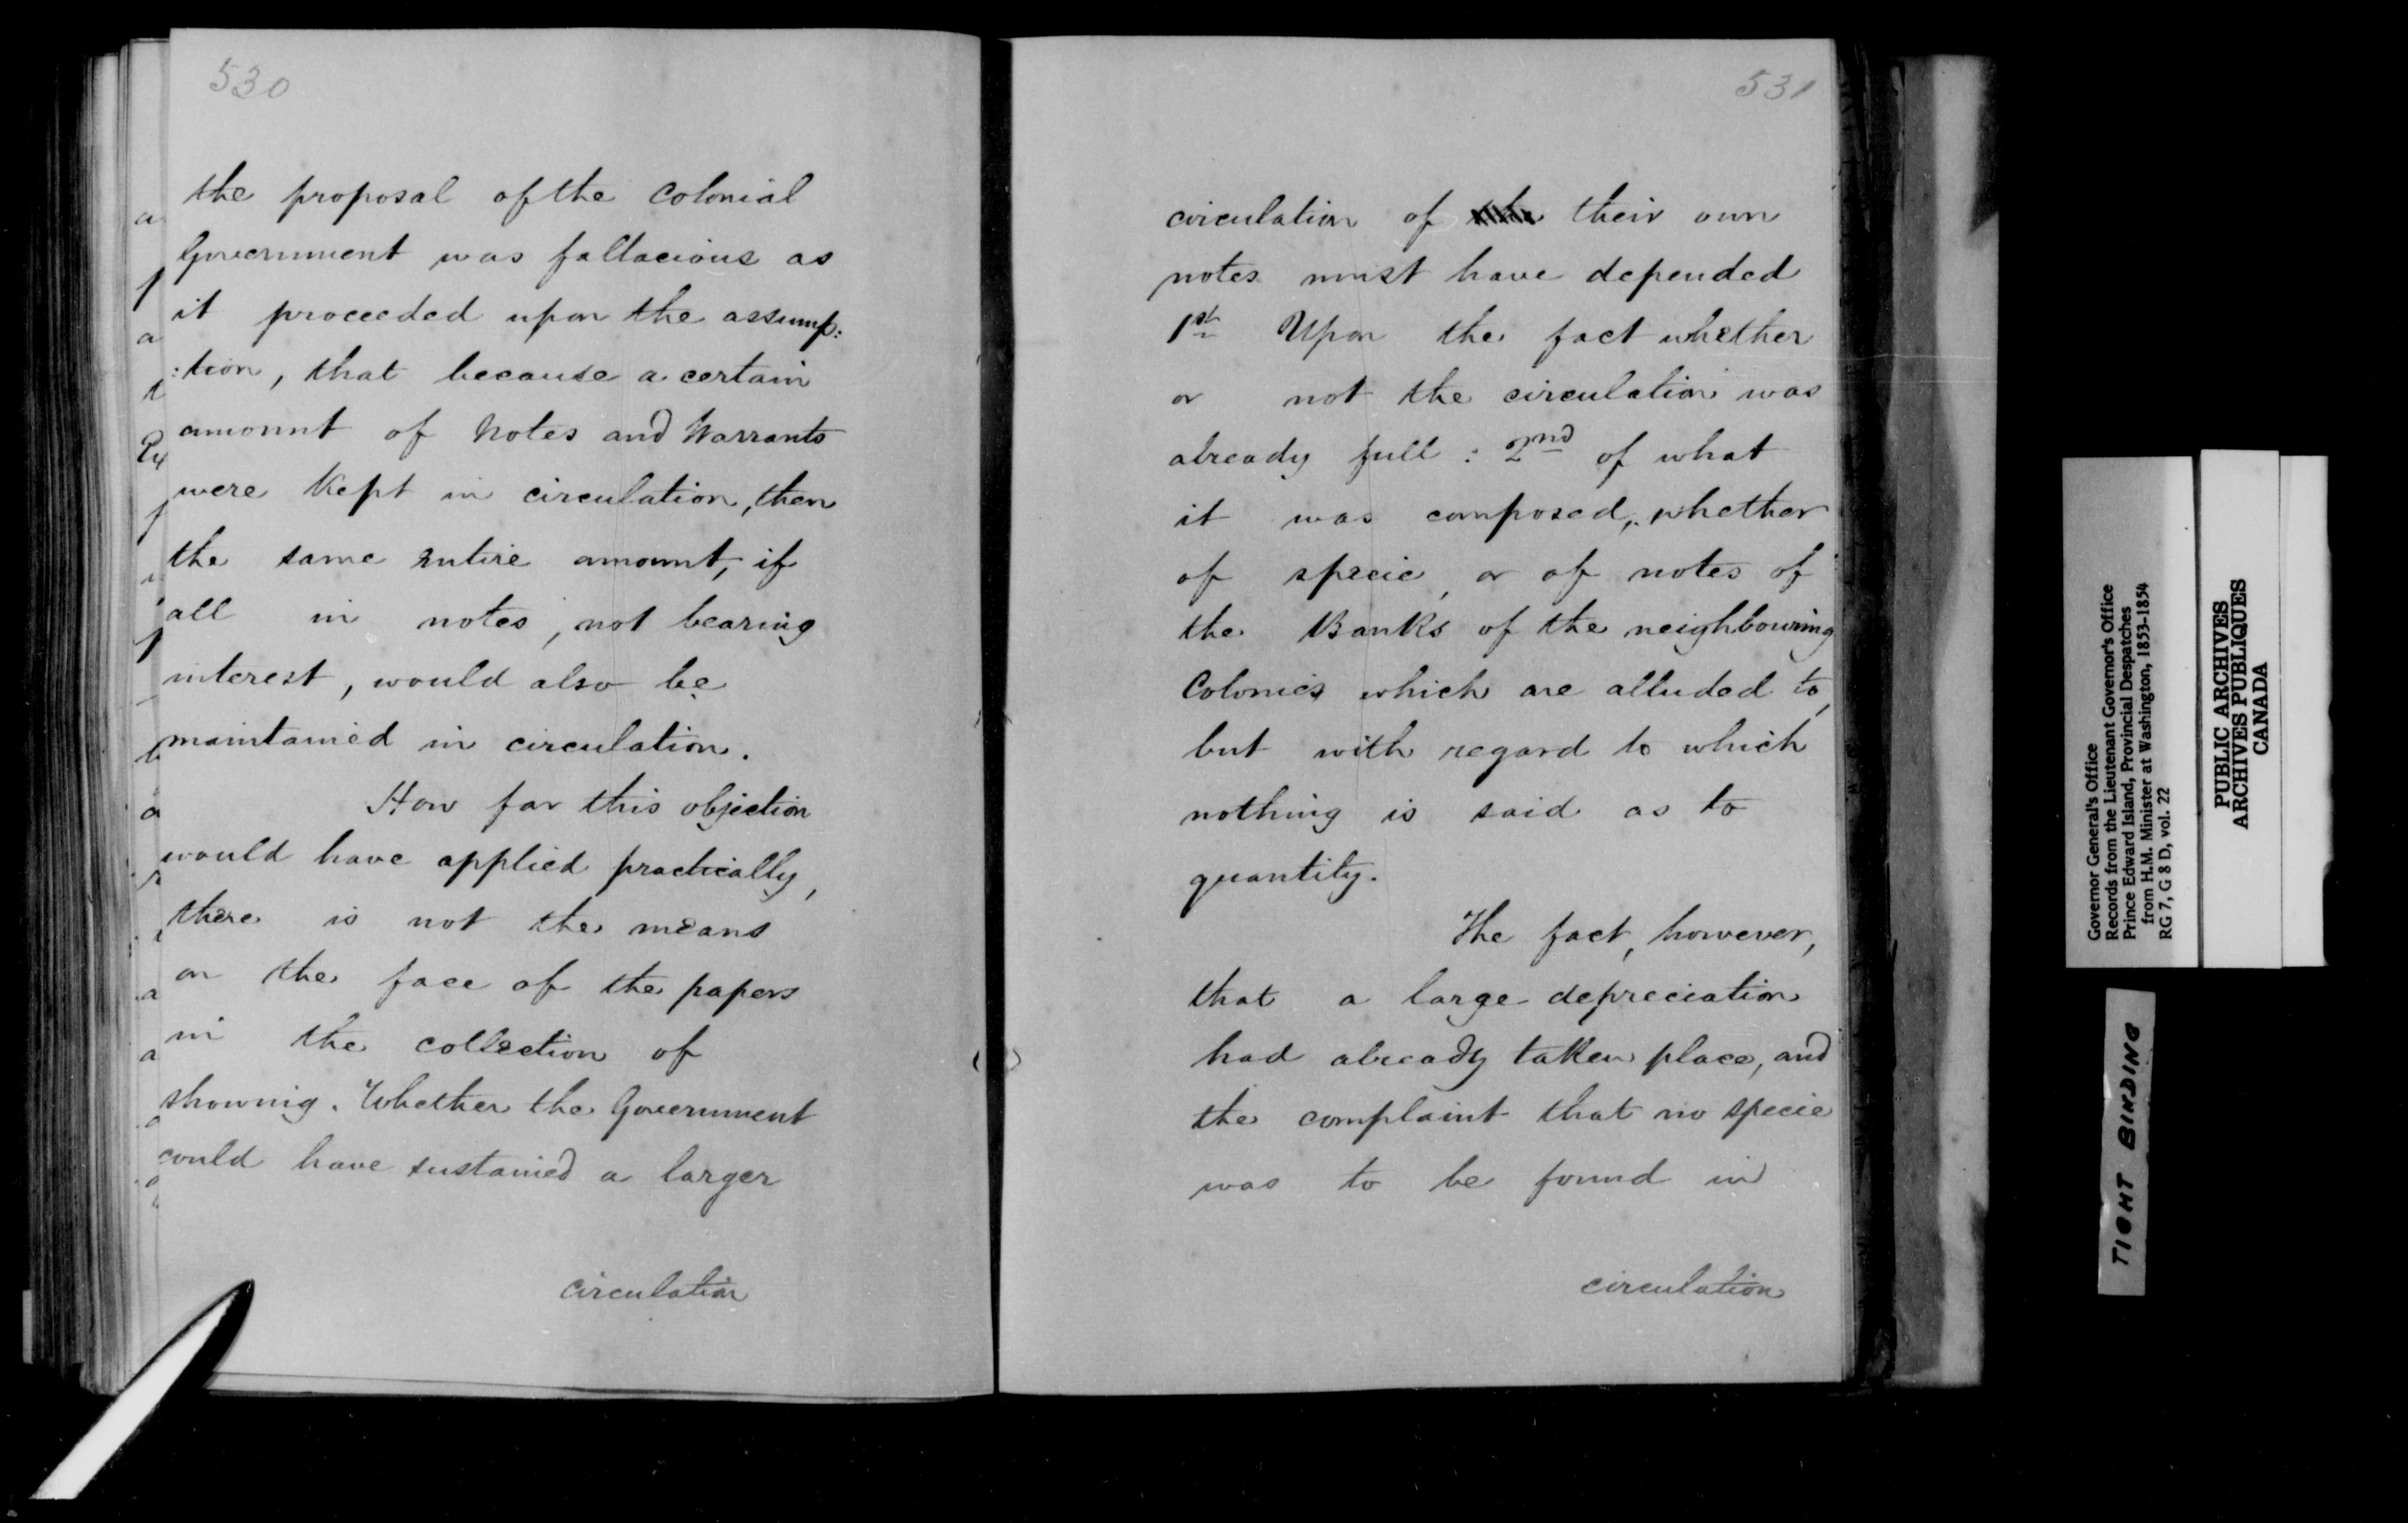 530
the proposal of the Colonial
Government was fallacious as
it proceeded upon the assump:
:tion, that because a certain
amount of Notes and Warrants
were Kept in circulation, then
the same entire amount, if
all in notes, not bearing
interest, would also be
maintained in circulation.
How far this objection
would have applied practically,
there is not the means
on the face of the papers
in the collection of
showing. Whether the Government
could have sustained a larger
circulation
531
circulation of their own
notes must have depended
1st Upon the fact whether
or not the circulation was
already full: 2nd of what
it was composed, whether
of specie, or of notes of
the Banks of the neighbouring
Colonies which are alluded to,
but with regard to which
nothing is said as to
quantity.
The fact, however,
that a large depreciation
had already taken place, and
the complaint that no specie
was to be found in
circulation
Governor General's Office
Records from the Lieutenant Governor's Office
Prince Edward Island, Provincial Despatches
from H.M. Minister at Washington, 1853-1854
RG 7, G 8 D, vol. 22
PUBLIC ARCHIVES
ARCHIVES PUBLIQUES
CANADA
TIGHT BINDING